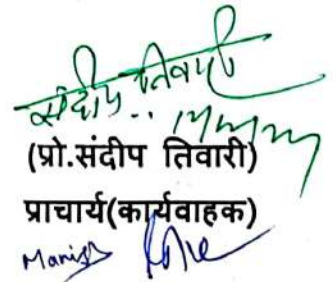 संदीप तिवारी
(प्रो.संदीप तिवारी)
प्राचार्य(कार्यवाहक)
Manish